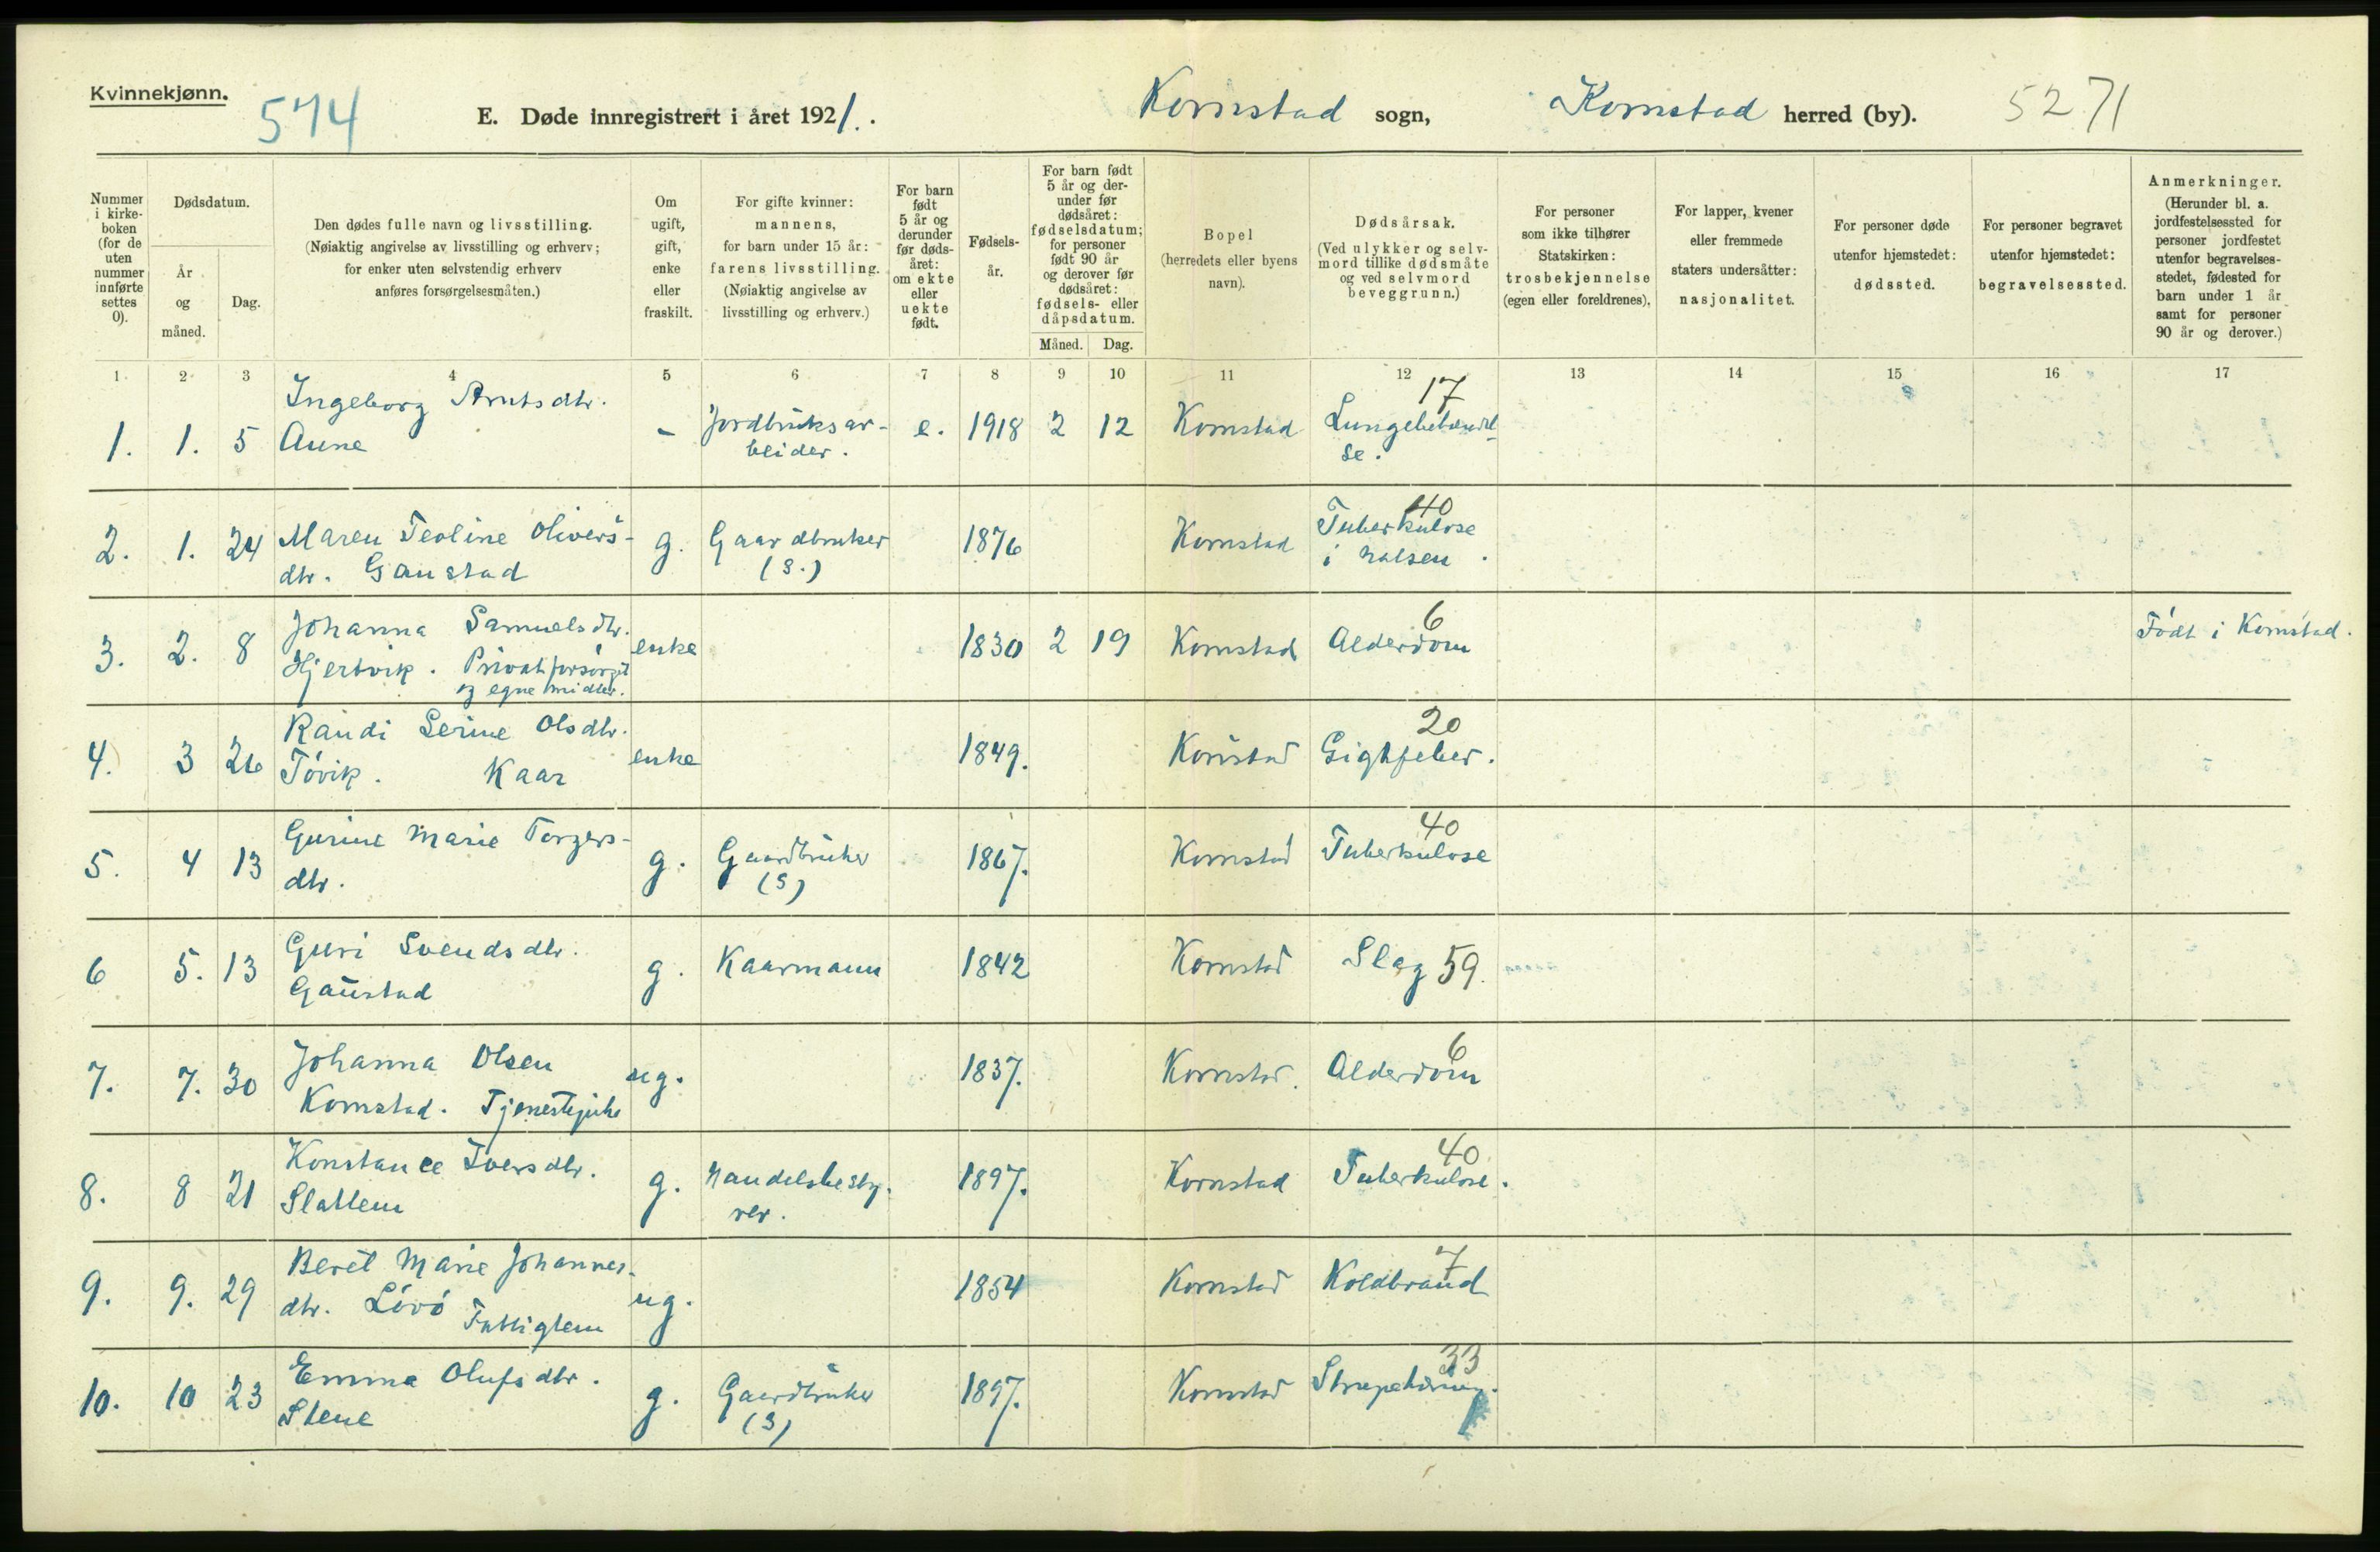 Kvinnekjønn.
574
E. Døde innregistrert i året 1921.
Kornstad sogn, Kornstad herred (by).
5271
Nummer i kirke-boken (for de uten nummer innførte settes 0).
Dødsdatum.
År og måned.
Dag.
Den dødes fulle navn og livsstilling.
(Nøiaktig angivelse av livsstilling og erhverv;
for enker uten selvstendig erhverv
anføres forsørgelsesmåten.)
Om ugift, gift, enke eller fraskilt.
For gifte kvinner:
mannens,
for barn under 15 år:
farens livsstilling.
(Nøiaktig angivelse av
livsstilling og erhverv.)
For barn født 5 år og derunder før døds-året: om ekte eller uekte født.
Fødsels-år.
For barn født 5 år og der-under før dødsåret: fødselsdatum; for personer født 90 år og derover før dødsåret: fødsels- eller dåpsdatum.
Måned. Dag.
Bopel
(herredets eller byens
navn).
Dødsårsak.
(Ved ulykker og selv-
mord tillike dødsmåte
og ved selvmord
beveggrunn.)
For personer
som ikke tilhører
Statskirken:
trosbekjennelse
(egen eller foreldrenes).
For lapper, kvener
eller fremmede
staters undersåtter:
nasjonalitet.
For personer døde
utenfor hjemstedet:
dødssted.
For personer begravet
utenfor hjemstedet:
begravelsessted.
Anmerkninger.
(Herunder bl. a.
jordfestelsessted for
personer jordfestet
utenfor begravelses-
stedet, fødested for
barn under 1 år
samt for personer
90 år og derover.)
1 2 3 4 5 6 7 8 9 10 11 12 13 14 15 16 17
1. 1. 5 Ingeborg Arntsdtr. Aune - Jordbruksar-beider. e. 1918 2 12 Kornstad Lungebetændelse. 17
2. 1. 24 Maren Teoline Olivers-dtr. Gaustad g. Gaardbruker (S.) 1876 Kornstad Tuberkulose i halsen. 40
3. 2. 8 Johanna Samuelsdtr. Hjertvik. Privat forsörget og egne midler. enke 1830 2 19 Kornstad Alderdom 6 Födt i Kornstad.
4. 3 26 Randi Serine Olsdtr. Tövik. Kaar enke 1849. Kornstad Gigtfeber. 20
5. 4 13 Gurine Marie Torgers-dtr. g. Gaardbruker (S) 1867. Kornstad Tuberkulose 40
6 5. 13 Guri Svendsdtr. Gaustad g. Kaarmann 1842 Kornstad Slag 59.
7. 7. 30 Johanna Olsen Kornstad. Tjenestepike ug. 1837. Kornstad. Alderdom 6
8. 8 21 Konstance Iversdtr. Slattem g. Handelsbesty-rer. 1897. Kornstad Tuberkulose. 40
9. 9. 29 Beret Marie Johannes-dtr. Lövö Fattiglem ug. 1854 Kornstad Koldbrand 7
10. 10 23 Emma Olufsdtr. Stene g. Gaardbruker (S) 1897. Kornstad 33